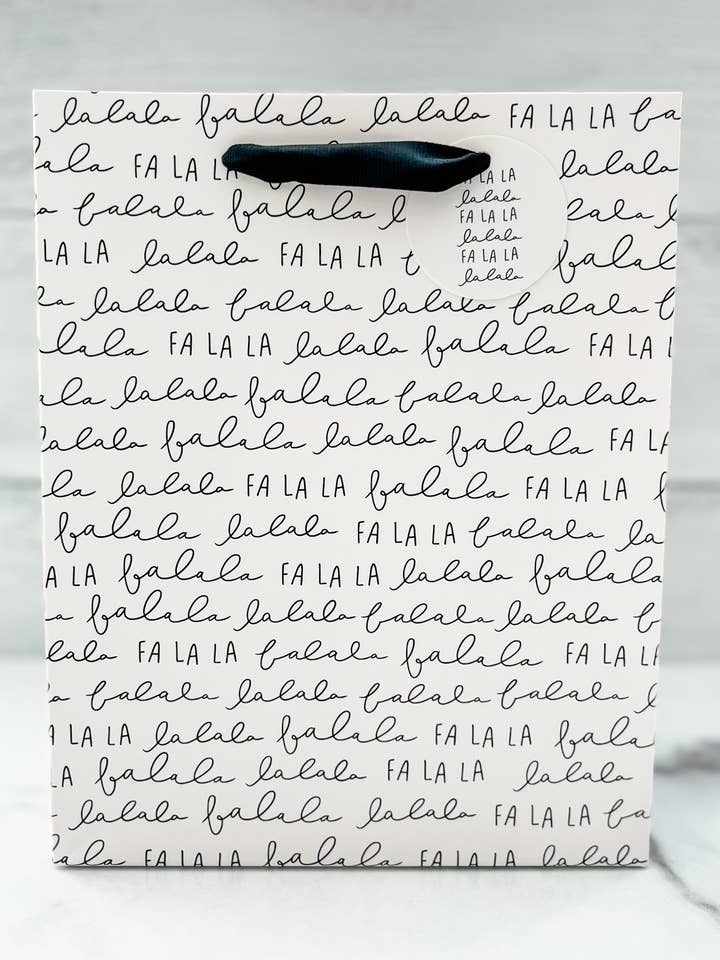 lalala falala lalala FA LA LA fa
ala FA LA lalala
a falala falala lala
LA LA lalala FA LA LA falal
la lalala falala lalala falala
lalala FA LA LA lalala falala FA LA
ala lalala falala falala lalala
lalala falala lalala falala FA LA
la lalala FA LA LA falala FA LA LA
falala lalala FA LA LA falala la
A LA falala FA LA LA lalala falala
a falala lalala falala lalala f
lala FA LA LA falala falala FA LA LA
a falala lalala falala falala
A LA LA lalala falala FA LA LA fala
LA falala lalala FA LA LA lalala
lalala falala lalala FA LA LA fa
lala FA LA LA falala FA LA LA lalala
LA LA
lalala
FA LA LA
lalala
FA LA LA
lalala